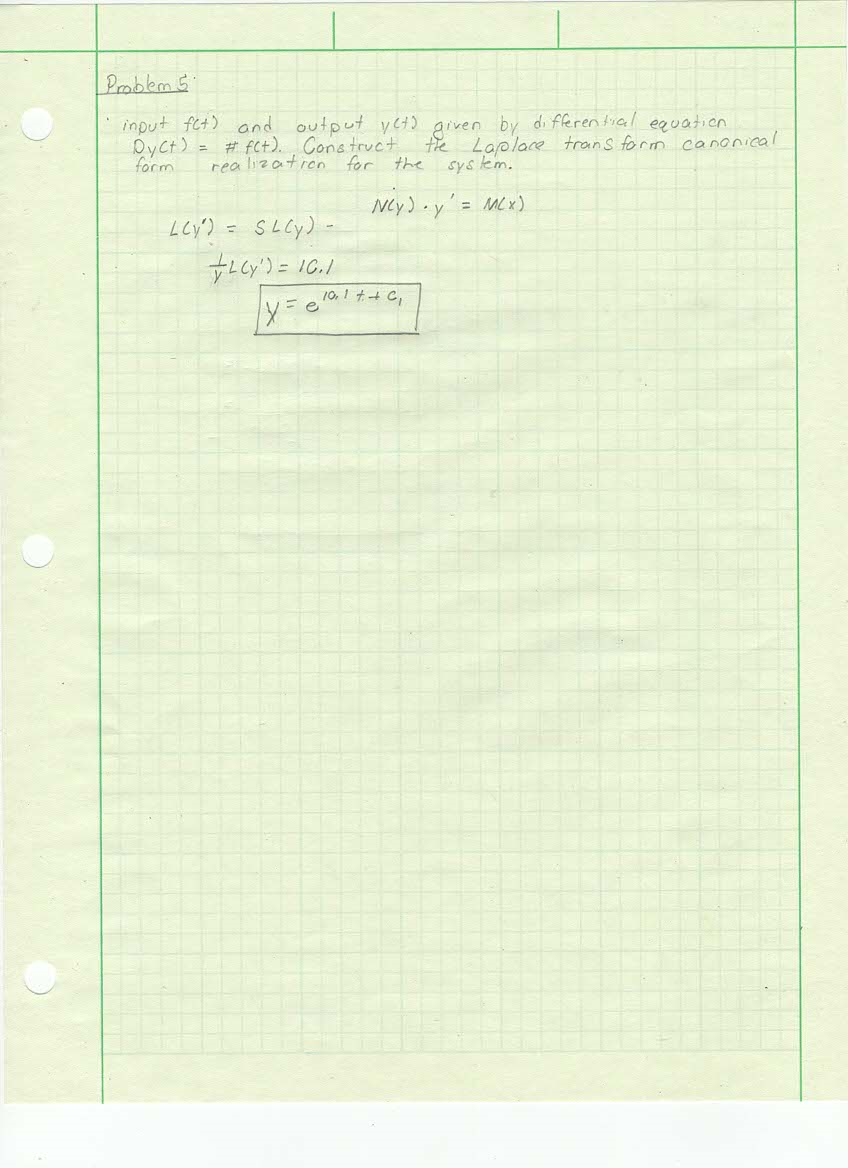 Problem 5
input f(t) and output y(t) given by differential equation
Dy(t) = # f(t). Construct the Laplace transform canonical
form realization for the system.
N(y) · y' = M(x)
L(y') = S L(y) -
1/y L(y') = 10.1
y = e^10.1t + C₁